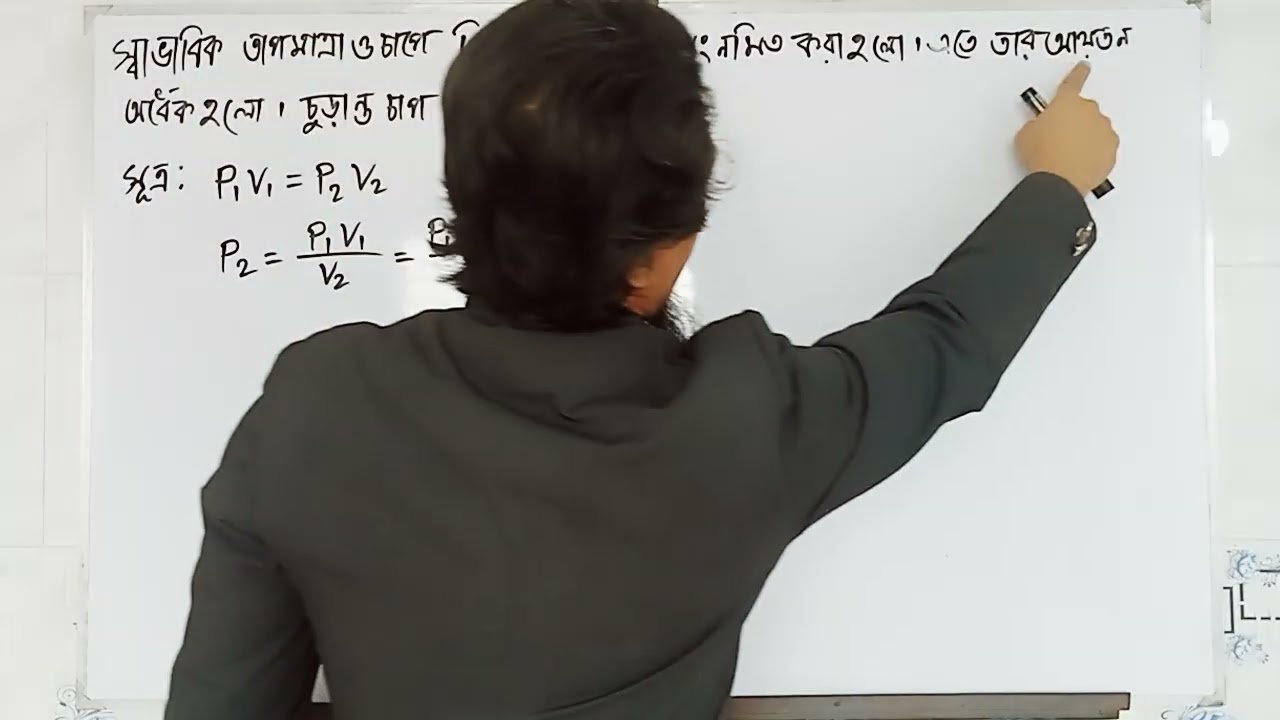 স্বাভাবিক তাপমাত্রা ও চাপে করা হলো। এতে তার আয়তন
অর্ধেক হলো। চুড়ান্ত চাপ
সূত্র: P₁V₁ = P₂V₂
P₂ = P₁V₁/V₂ =